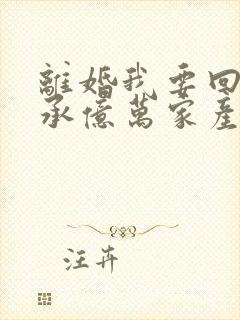 離婚我要回
承億萬家產
汪卉